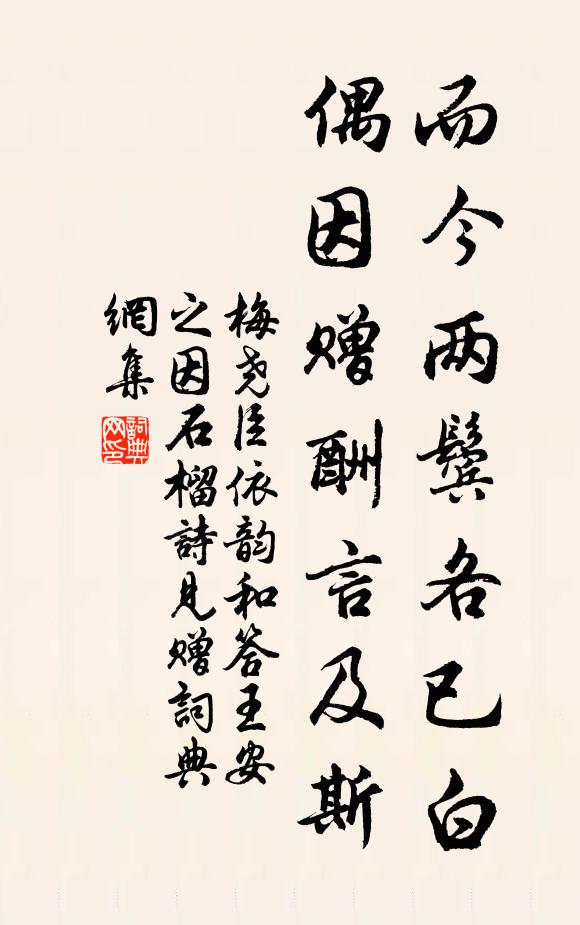 而今两鬓各已白
偶因赠酬言及斯
梅尧臣依韵和答王安
之因石榴詩见赠詞典
網集
詞典
网印